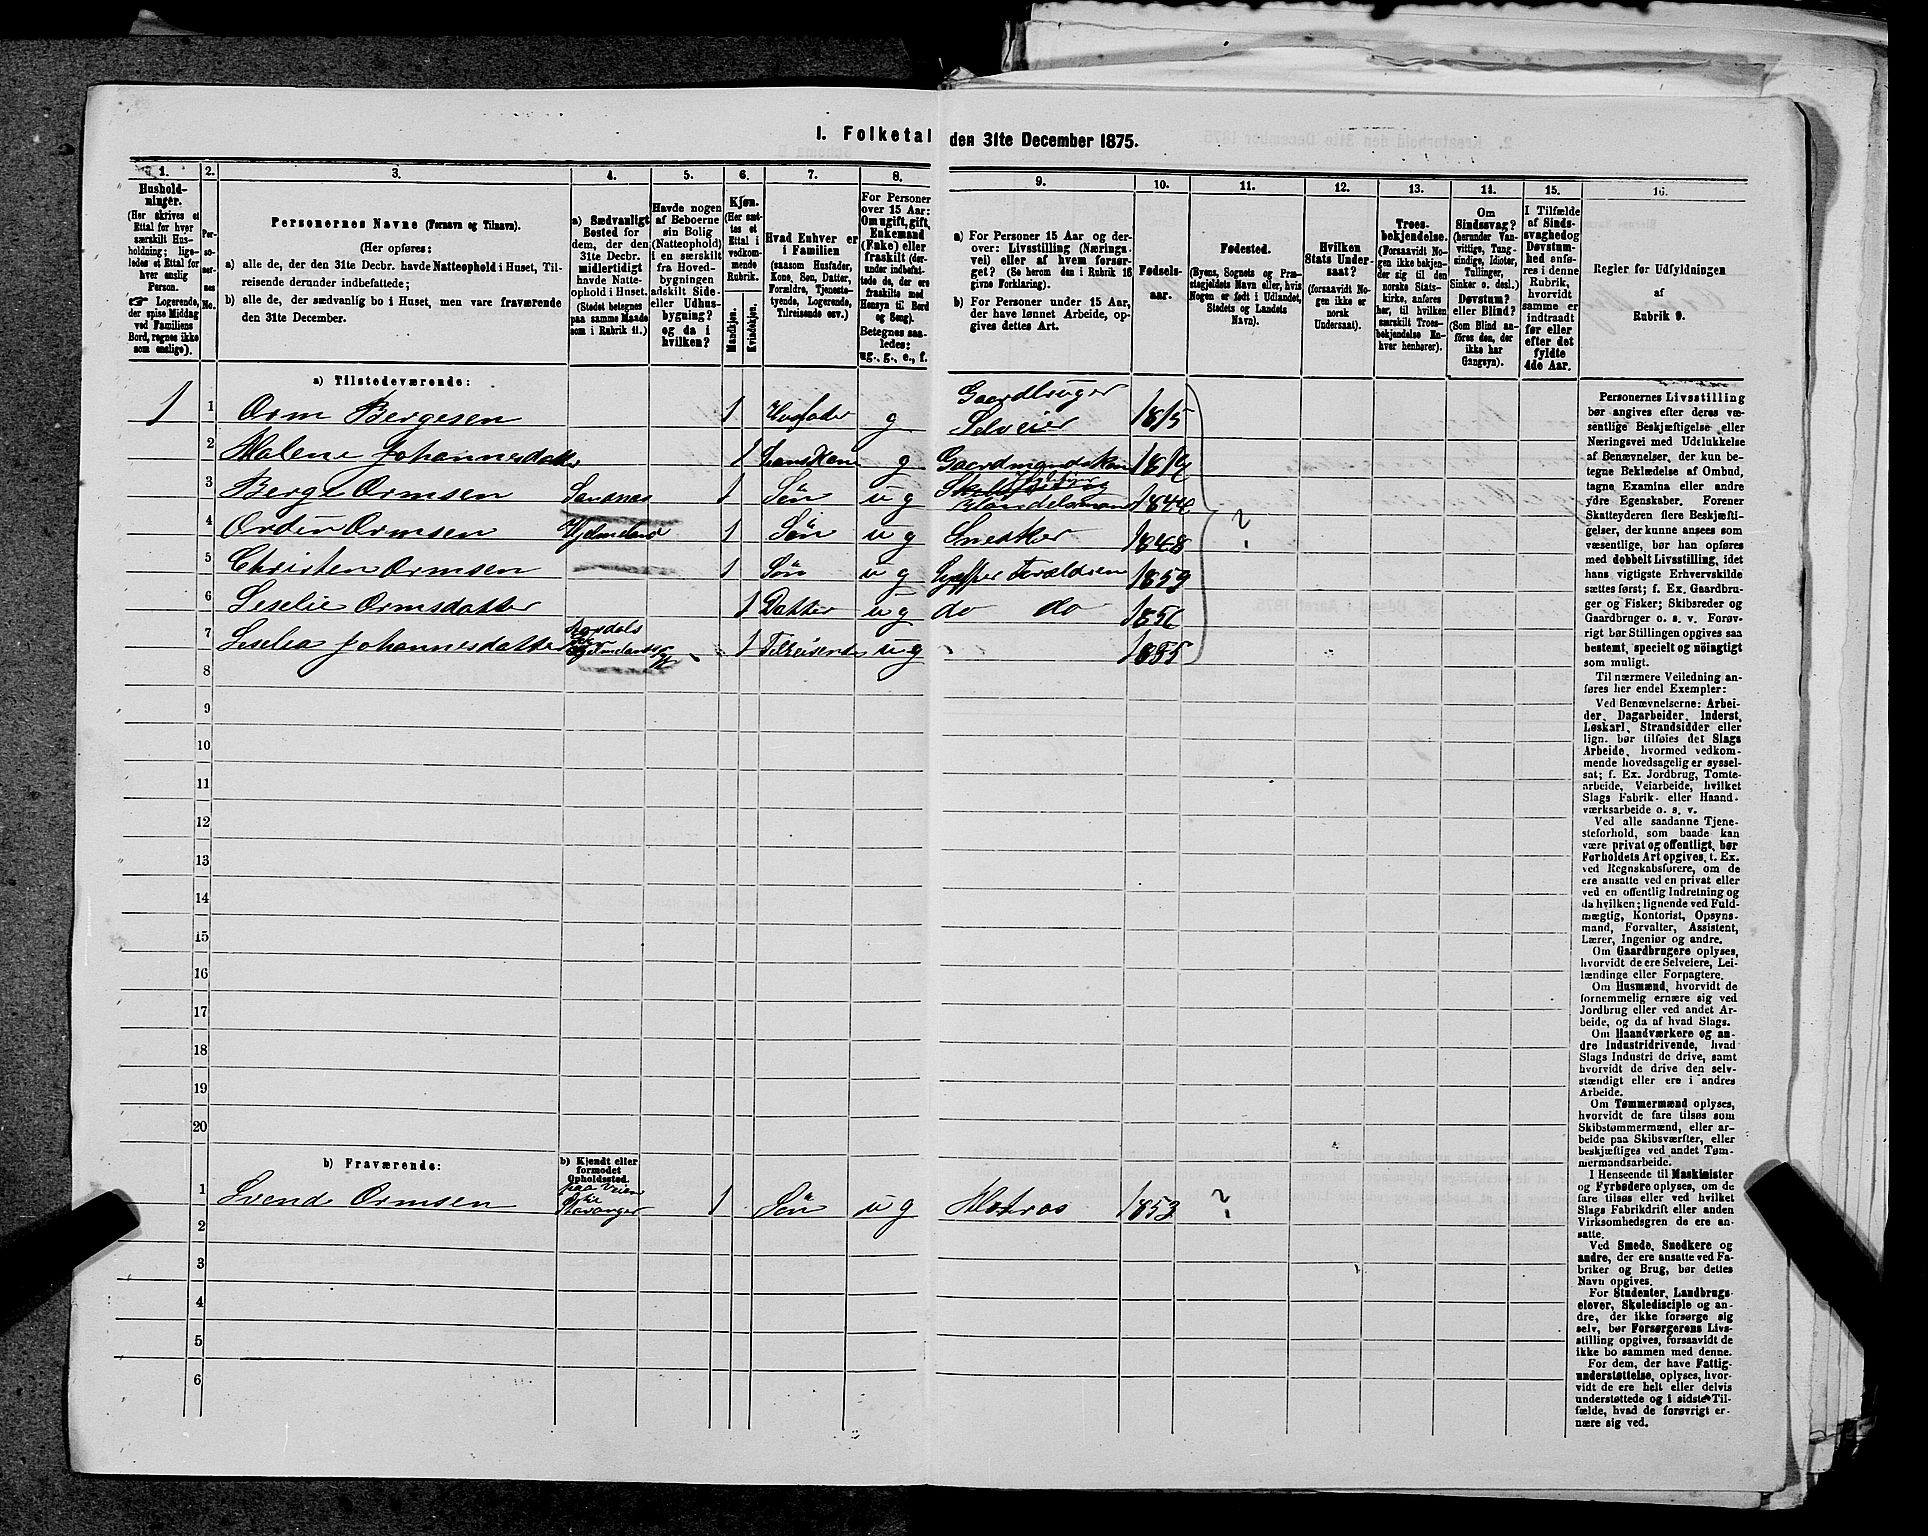 I. Folketal den 31te December 1875.
1. 2. 3. 4. 5. 6. 7. 8. 9. 10. 11. 12. 13. 14. 15. 16.
Hushold-
ninger.
(Her skrives et
Ettal for hver
særskilt Hus-
holdning; lige-
ledes et Ettal for
hver enslig
Person.
☞ Logerende,
der spise Middag
ved Familiens
Bord, regnes ikke
som enslige).
Per-
so-
ner-
nes
No.
Personernes Navne (Fornavn og Tilnavn).
(Her opføres:
a) alle de, der den 31te Decbr. havde Natteophold i Huset, Til-
reisende derunder indbefattede;
b) alle de, der sædvanlig bo i Huset, men vare fraværende
den 31te December.
a) Sædvanligt
Bosted for
dem, der den
31te Decbr.
midlertidigt
havde Natte-
ophold i Huset.
(Stedet betegnes
paa samme Maade
som i Rubrik 11.)
Havde nogen
af Beboerne
sin Bolig
(Natteophold)
i en særskilt
fra Hoved-
bygningen
adskilt Side-
eller Udhus-
bygning?
og da i
hvilken?
Kjøn.
(Her sæt-
tes et
Ettal i
vedkom-
mende
Rubrik.
Mandkjøn.
Kvindekjøn.
Hvad Enhver er
i Familien
(saasom Husfader,
Kone, Søn, Datter,
Forældre, Tjeneste-
tyende, Logerende,
Tilreisende osv.)
For Personer
over 15 Aar:
Om ugift, gift,
Enkemand
(Enke) eller
fraskilt (der-
under indbefat-
tede de, der ere
fraskilte med
Hensyn til Bord
og Seng).
Betegnes saa-
ledes:
ug., g., e., f.
a) For Personer 15 Aar og der-
over: Livsstilling (Nærings-
vei) eller af hvem forsør-
get? (Se herom den i Rubrik 16
givne Forklaring).
b) For Personer under 15 Aar,
der have lønnet Arbeide, op-
gives dettes Art.
Fødsels-
aar.
Fødested.
(Byens, Sognets og Præ-
stegjeldets Navn eller, hvis
Nogen er født i Udlandet,
Stedets og Landets
Navn).
Hvilken
Stats Under-
saat?
(forsaavidt No-
gen ikke er
norsk
Undersaat).
Troes-
bekjendelse.
(Forsaavidt No-
gen ikke bekjen-
der sig til den
norske Stats-
kirke, anføres
her, til hvilken
særskilt Troes-
bekjendelse En-
hver henhører).
Om
Sindssvag?
(herunder Van-
vittige, Tung-
sindige, Idioter,
Tullinger,
Sinker o. desl.)
Døvstum?
eller Blind?
(Som Blind an-
føres den, der
ikke har
Gangsyn).
I Tilfælde
af Sinds-
svaghed og
Døvstum-
hed anfø-
res i denne
Rubrik,
hvorvidt
samme er
indtraadt
før eller
efter det
fyldte
4de Aar.
Regler for Udfyldningen
af
Rubrik 9.
a) Tilstedeværende:
1 1 Orm Bergesen 1 Husfader g Gaardbruger Selveier 1815
2 Malene Johannesdatter 1 hans Kone g 1
3 Berge Ormsen Sandnæs 1 Søn ug Handelsmand 1844
4 Ormsen Hjelmeland 1 Søn ug Snedker 1848 ?
5 Christen Ormsen 1 Søn ug 1859
6 Ormsdatter 1 Datter ug do do 1856
7 Johannesdatter 1 Tilreisende ug 1855
8
9
10
11
12
13
14
15
16
17
18
19
20
b) Fraværende:
b) Kjendt eller
formodet
Opholdssted.
1 Svend Ormsen paa Veien til Stavanger 1 Søn ug Matros 1853 ?
2
3
4
5
6
Personernes Livsstilling
bør angives efter deres væ-
sentlige Beskjæftigelse eller
Næringsvei med Udelukkelse
af Benævnelser, der kun be-
tegne Beklædelse af Ombud,
tagne Examina eller andre
ydre Egenskaber. Forener
Skatteyderen flere Beskjæfti-
gelser, der kunne ansees som
væsentlige, bør han opføres
med dobbelt Livsstilling, idet
hans vigtigste Erhvervskilde
sættes først; f. Ex. Gaardbru-
ger og Fisker; Skibsreder og
Gaardbruger o. s. v. Forøv-
rigt bør Stillingen opgives saa
bestemt, specielt og nöiagtigt
som muligt.
Til nærmere Veiledning an-
føres her endel Exempler:
Ved Benævnelserne: Arbei-
der, Dagarbeider, Inderst,
Løskarl, Strandsidder eller
lign. bør tilføies det Slags
Arbeide, hvormed vedkom-
mende hovedsagelig er syssel-
sat; f. Ex. Jordbrug, Tomte-
arbeide, Veiarbeide, hvilket
Slags Fabrik- eller Haand-
værksarbeide o. s. v.
Ved alle saadanne Tjene-
steforhold, som baade kan
være privat og offentligt, bør
Forholdets Art opgives, t. Ex.
ved Regnskabsførere, om de
ere ansatte ved en privat eller
ved en offentlig Indretning og
da hvilken; lignende ved Fuld-
mægtig, Kontorist, Opsyns-
mand, Forvalter, Assistent,
Lærer, Ingeniør og andre.
Om Gaardbrugere oplyses,
hvorvidt de ere Selveiere, Lei-
lændinge eller Forpagtere.
Om Husmænd, hvorvidt de
fornemmelig ernære sig ved
Jordbrug eller ved andet Ar-
beide, og da af hvad Slags.
Om Haandværkere og an-
dre Industridrivende, hvad
Slags Industri de drive, samt
hvorvidt de drive den selv-
stændigt eller ere i andres
Arbeide.
Om Tømmermænd oplyses,
hvorvidt de fare tilsøs som
Skibstømmermænd, eller ar-
beide paa Skibsværfter, eller
beskjæftiges ved andet Tøm-
mermandsarbeide.
I Henseende til Maskinister
og Fyrbødere oplyses, om de
fare tilsøs eller ved hvilket
Slags Fabrikdrift eller anden
Virksomhedsgren de ere an-
satte.
Ved Smede, Snedkere og
andre, der ere ansatte ved Fa-
briker og Brug, bør dettes
Navn opgives.
For Studenter, Landbrugs-
elever, Skoledisciple og an-
dre, der ikke forsørge sig
selv, bør Forsørgerens Livs-
stilling opgives, forsaavidt de
ikke bo sammen med denne.
For dem, der have Fattig-
understøttelse, oplyses, hvor-
vidt de ere helt eller delvis
understøttede og i sidste Til-
fælde, hvad de forøvrigt er-
nære sig ved.